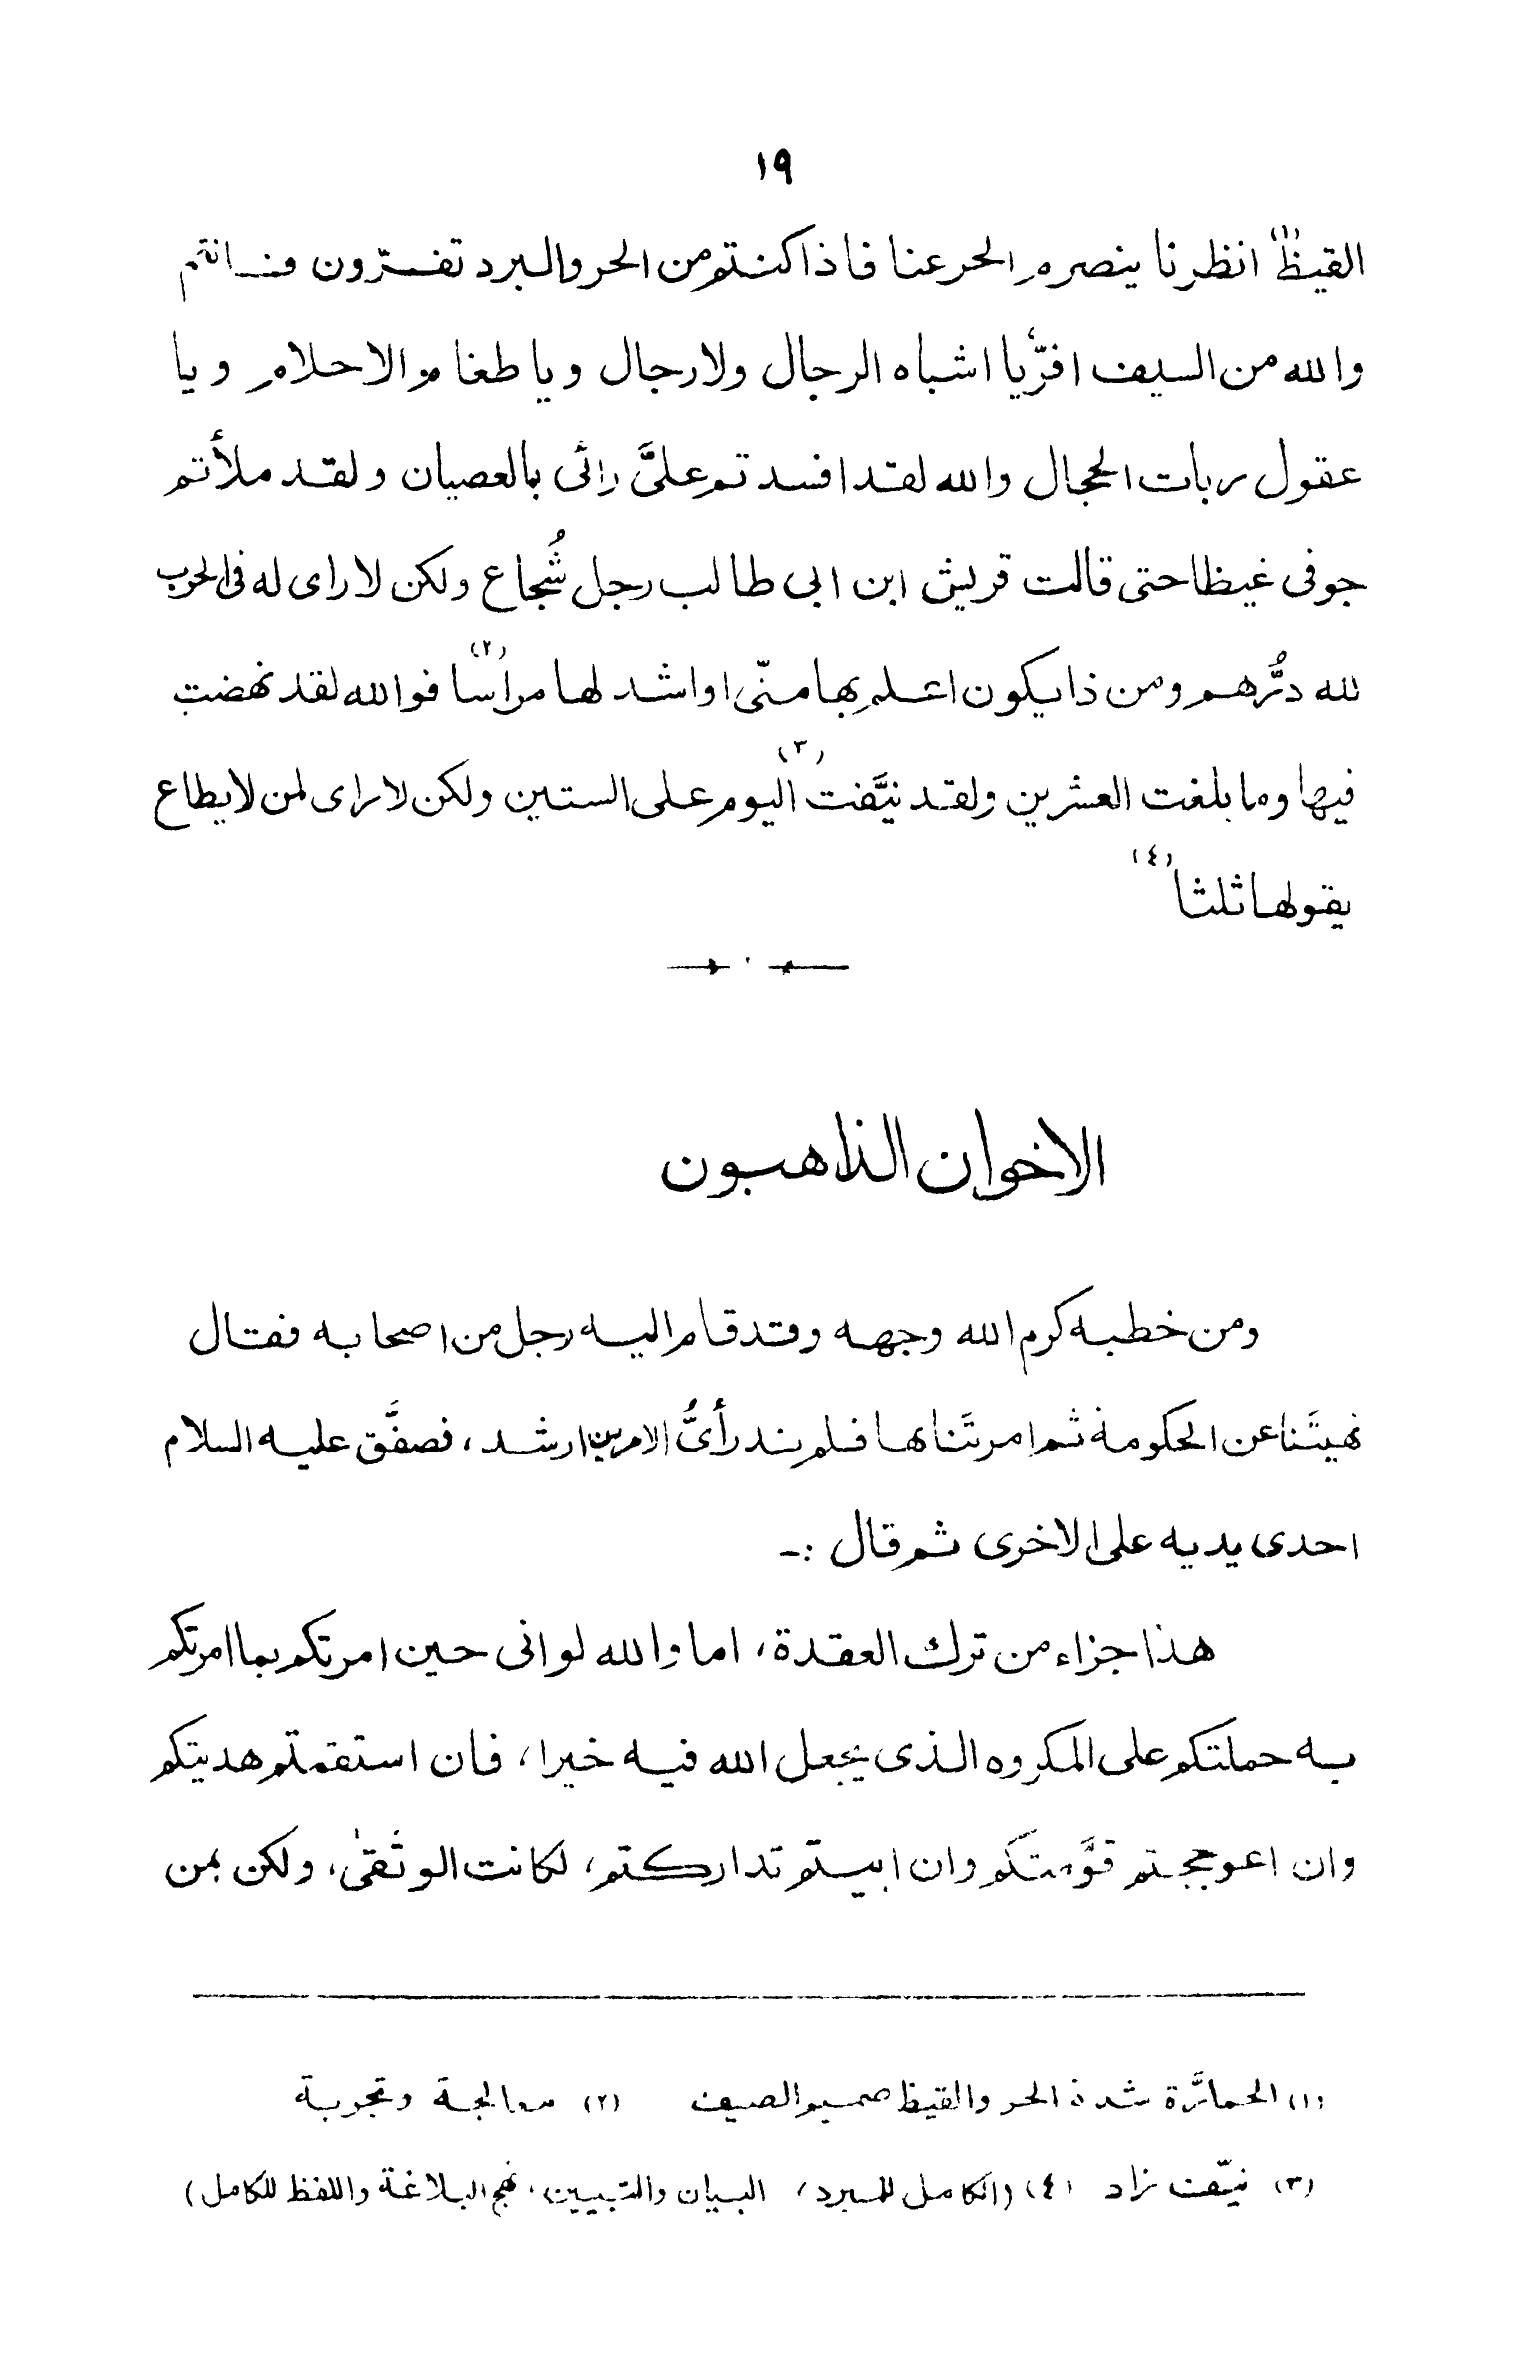 ١٩
القيظ(١) انظرنا ينصرم الحر عنا فاذا كنتم من الحر والبرد تفرّون فانتم
والله من السيف افرّ يا اشباه الرجال ولا رجال ويا طغام الاحلام ويا
عقول ربات الحجال والله لقد افسدتم علىَّ رائى بالعصيان ولقد ملأتم
جوفى غيظا حتى قالت قريش ابن ابى طالب رجل شُجاع ولكن لا راى له فى الحرب
لله درُّهم ومن ذا يكون اعلم بها منّى او اشد لها مراسا(٢) فوالله لقد نهضت
فيها وما بلغت العشرين ولقد نيَّفت(٣) اليوم على الستين ولكن لا راى لمن لا يطاع
يقولها ثلثا(٤)
الاخوان الذاهبون
ومن خطبه كرم الله وجهه وقد قام اليه رجل من اصحابه فقال
نهيتَنا عن الحكومة ثم امرتَنا بها فلم ندر أىُّ الامرين ارشد، فصفَّق عليه السلام
احدى يديه على الاخرى ثم قال :-
هذا جزاء من ترك العقدة، اما والله لو انى حين امرتكم بما امرتكم
به حملتكم على المكروه الذى يجعل الله فيه خيرا، فان استقمتم هديتكم
وان اعوججتم قوَّمتكم وان ابيتم تداركتم، لكانت الوثقىٰ، ولكن بمن
(١) الحمارَّة شدة الحر والقيظ صميم الصيف (٢) معالجة وتجربة
(٣) نيّفت زاد (٤) (الكامل للمبرد، البيان والتبيين، نهج البلاغة واللفظ للكامل)